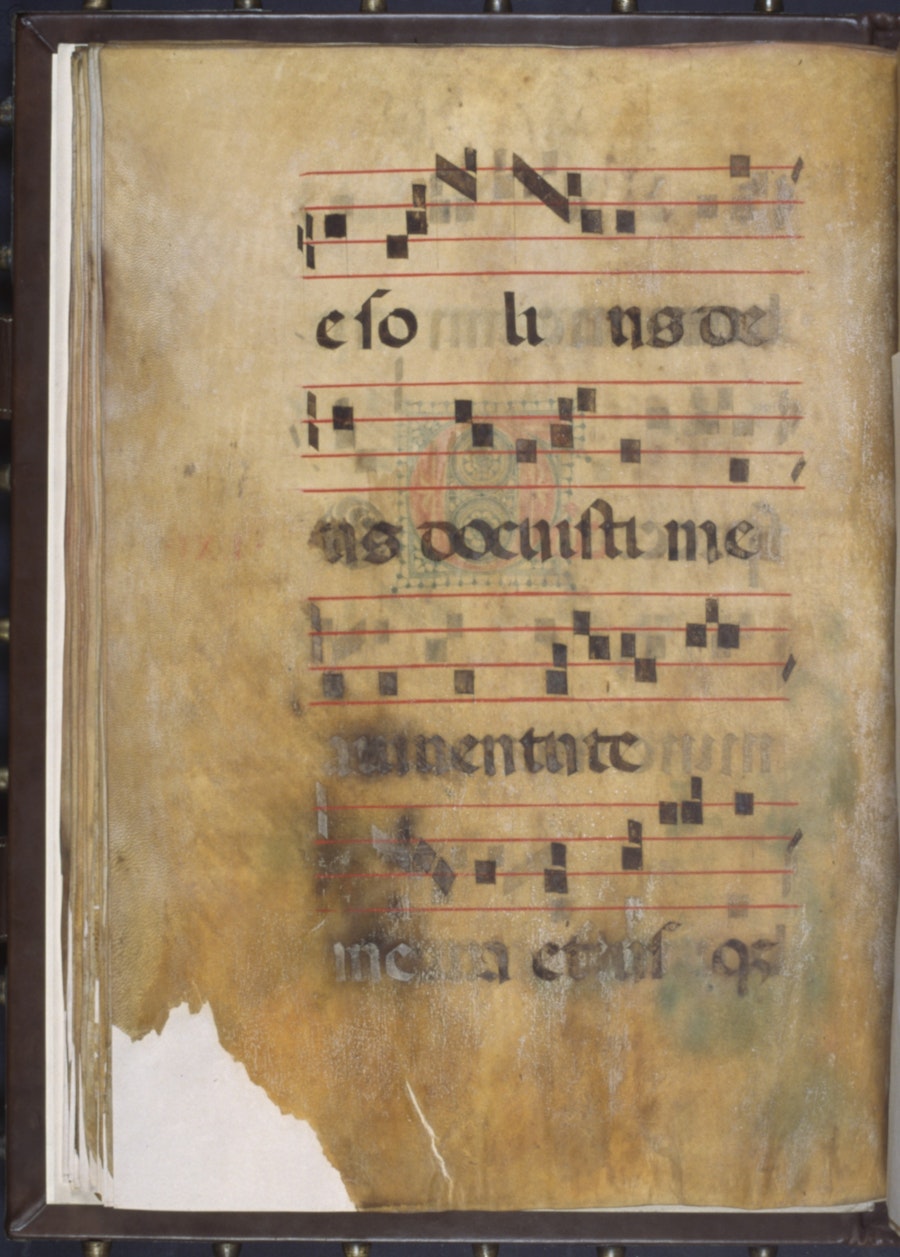 e so li us de
us docuisti me
a iuuentute
mea a et us qꝫ